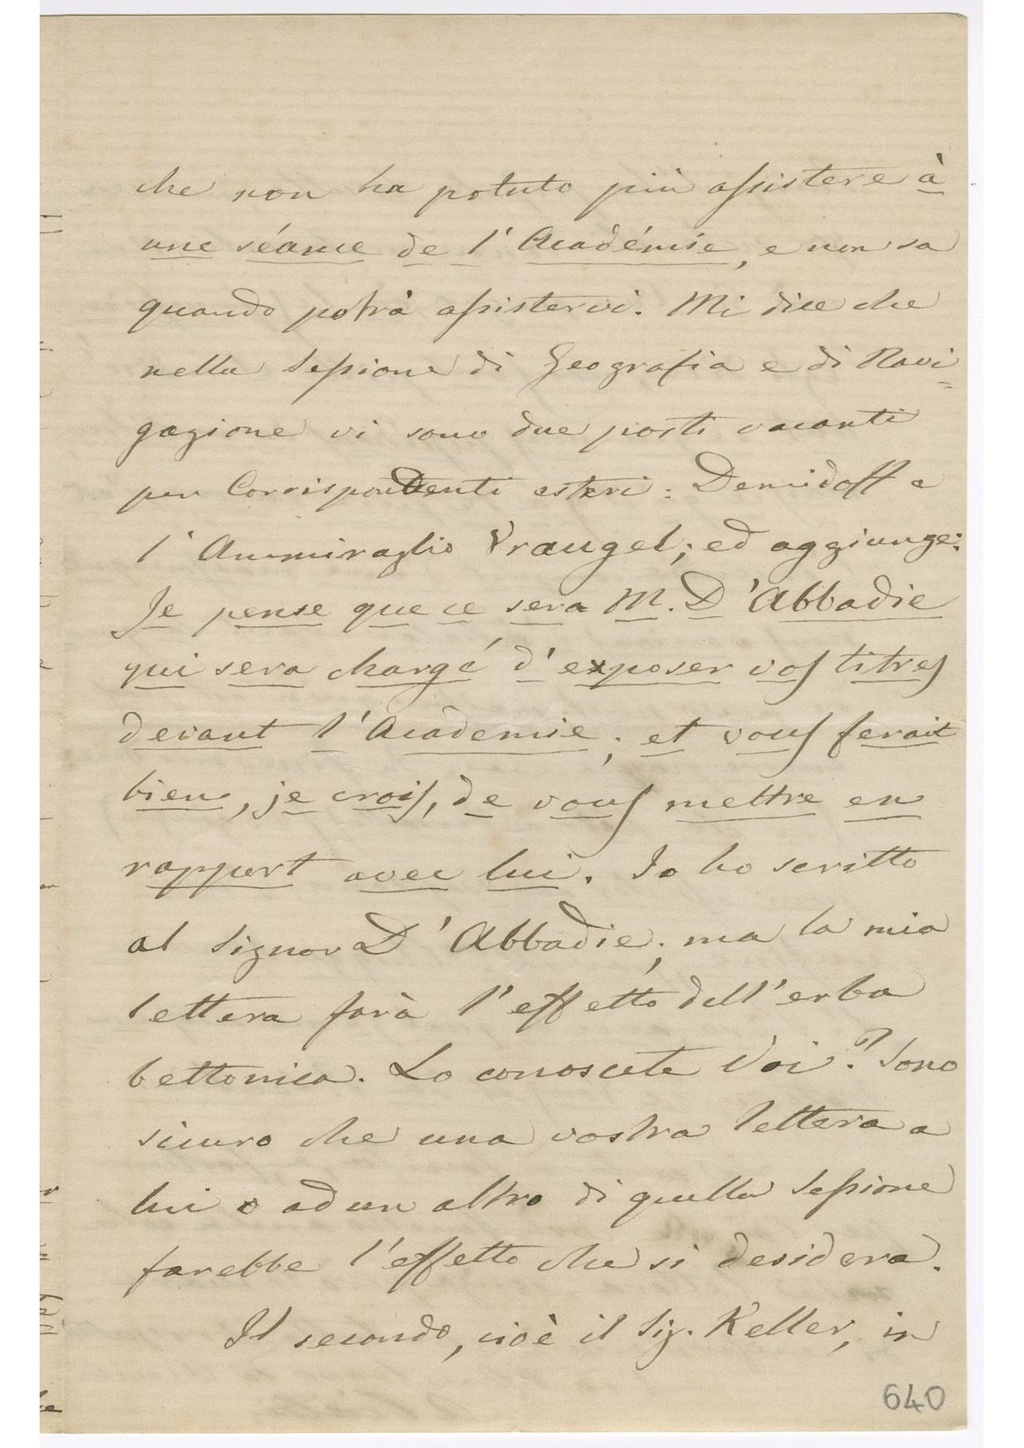 che non ha potuto più assistere à
une séance de l'Académie, e non sa
quando potrà assistervi. Mi dice che
nella Sessione di Geografia e di Navi=
gazione vi sono due posti vacanti
per Corrispondenti esteri: Demidoff e
l'Ammiraglio Vrangel; ed aggiunge:
Je pense que ce sera M. D'Abbadie
qui sera chargé d'exposer vos titres
devant l'Acadèmie; et vous ferait
bien, je crois, de vous mettre en
rapport avec lui. Io ho scritto
al Signor D'Abbadie; ma la mia
lettera farà l'effetto dell'erba
bettonica. Lo conoscete Voi? Sono
sicuro che una vostra lettera a
lui o ad un altro di quella Sessione
farebbe l'effetto che si desidera.
Il secondo, cioè il Sig. Keller, in
640